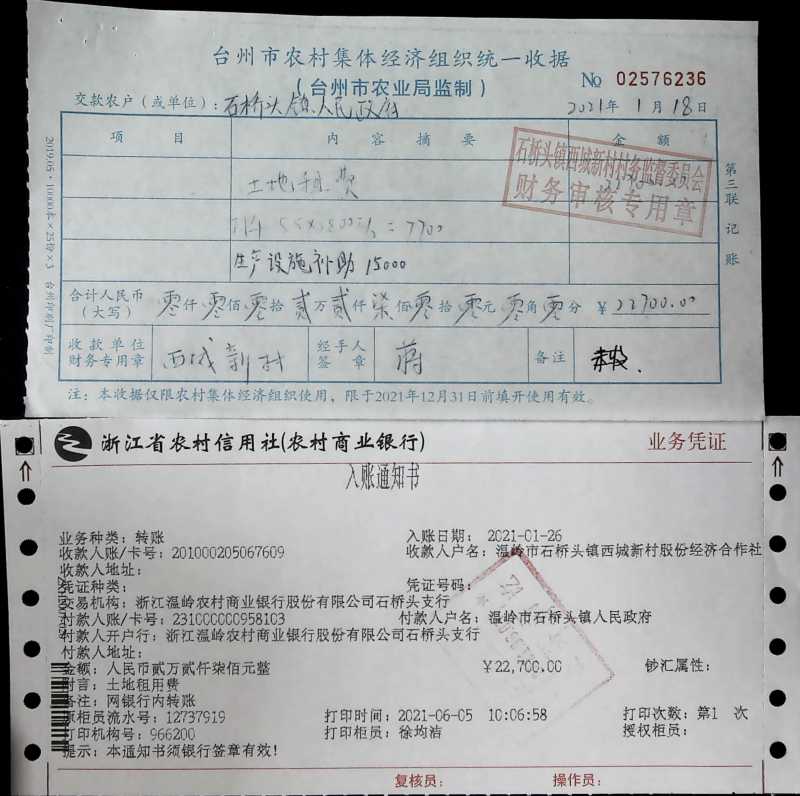 台州市农村集体经济组织统一收据
（台州市农业局监制）
№ 02576236
交款农户（或单位）：石桥头镇人民政府 2021年1月18日
项目 内容摘要 金额
石桥头镇西城新村村务监督委员会
财务审核专用章
土地租费
= 7700
生产设施补助 15000
合计人民币（大写） 零仟零佰零拾贰万贰仟柒佰零拾零元零角零分 ￥22700.00
收款单位财务专用章 西城新村 经手人签章 蒋 备注
注：本收据仅限农村集体经济组织使用，限于2021年12月31日前填开使用有效。
第三联 记账
2019.05·10000本×25份×3 台州印刷厂印制
浙江省农村信用社(农村商业银行) 业务凭证
入账通知书
业务种类：转账 入账日期： 2021-01-26
收款人账/卡号：201000205067609 收款人户名：温岭市石桥头镇西城新村股份经济合作社
收款人地址：
凭证种类： 凭证号码：
交易机构：浙江温岭农村商业银行股份有限公司石桥头支行
付款人账/卡号：231000000958103 付款人户名：温岭市石桥头镇人民政府
付款人开户行：浙江温岭农村商业银行股份有限公司石桥头支行
付款人地址：
金额：人民币贰万贰仟柒佰元整 ￥22,700.00 钞汇属性：
附言：土地租用费
备注：网银行内转账
原柜员流水号：12737919 打印时间：2021-06-05 10:06:58 打印次数：第1 次
打印机构号：966200 打印柜员：徐均洁 授权柜员：
提示：本通知书须银行签章有效！
复核员： 操作员：